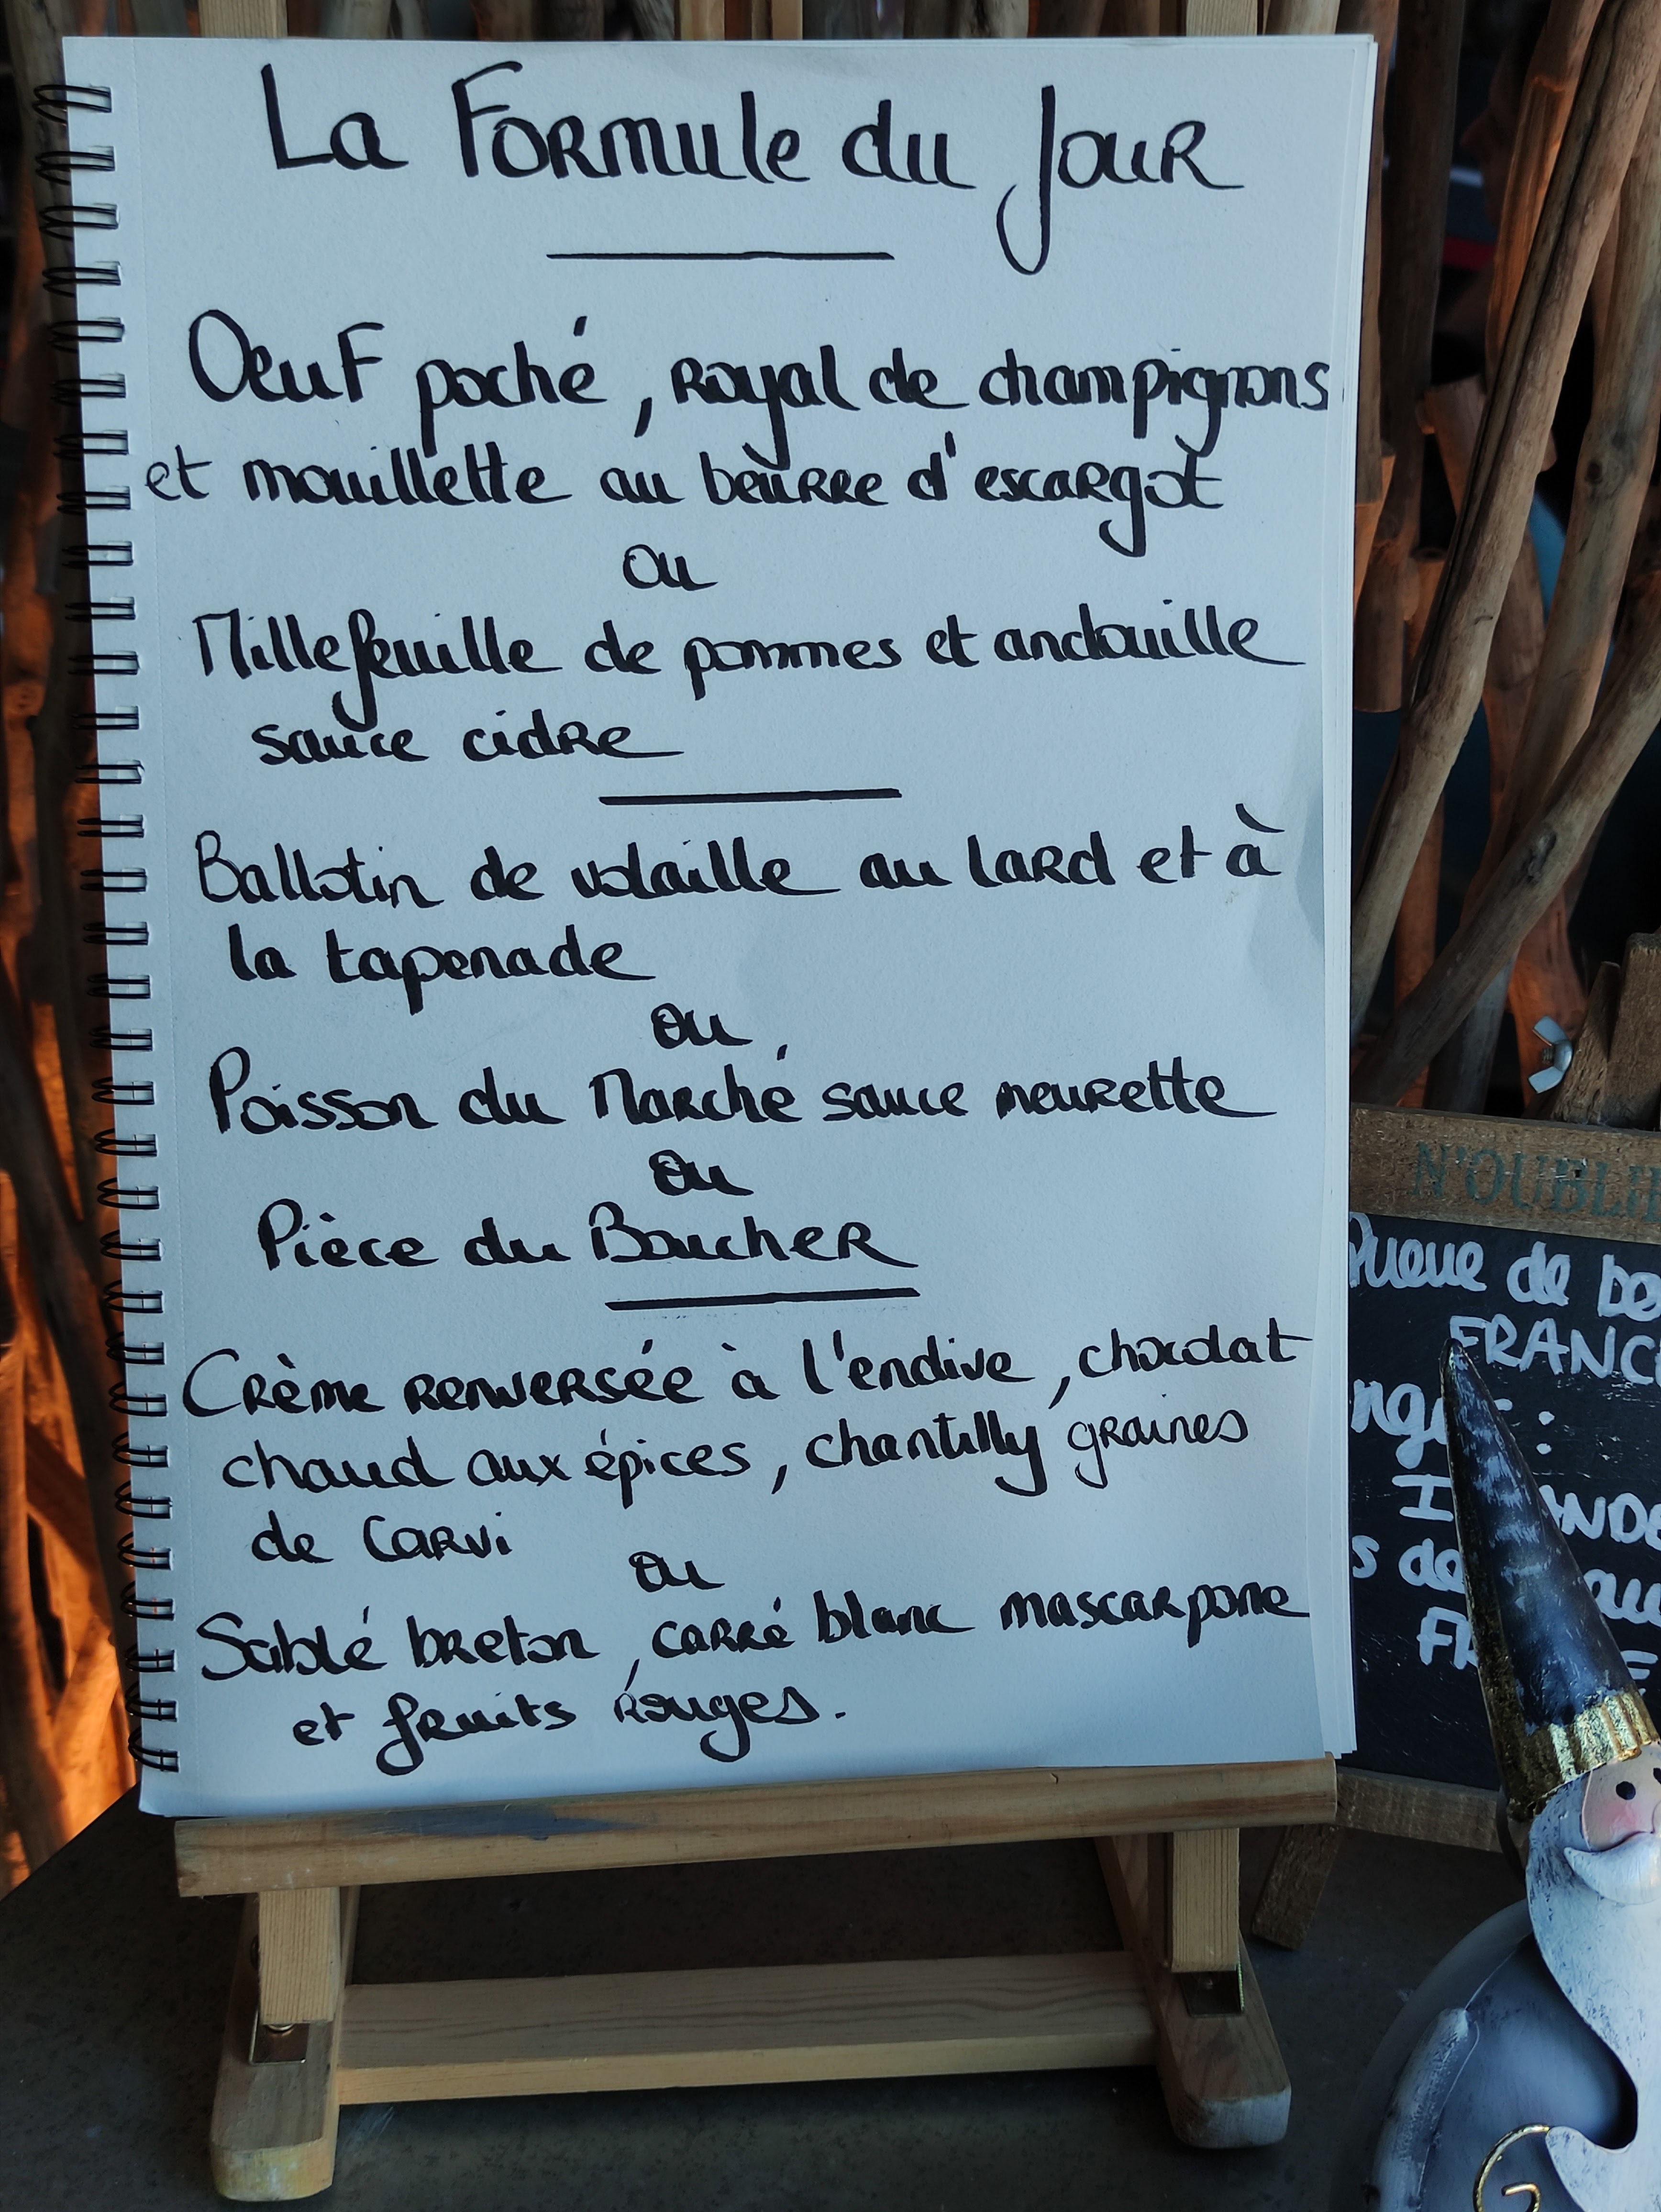 La Formule du Jour
Oeuf poché, Royal de champignons
et mouillette au beurre d'escargot
ou
Millefeuille de pommes et andouille
sauce cidre
Ballotin de volaille au lard et à
la tapenade
ou
Poisson du Marché sauce meurette
ou
Pièce du Boucher
Crème renversée à l'endive, chocolat
chaud aux épices, chantilly graines
de Carvi
ou
Sablé breton, carré blanc mascarpone
et fruits rouges.
N'OUBLI
Queue de
FRANC